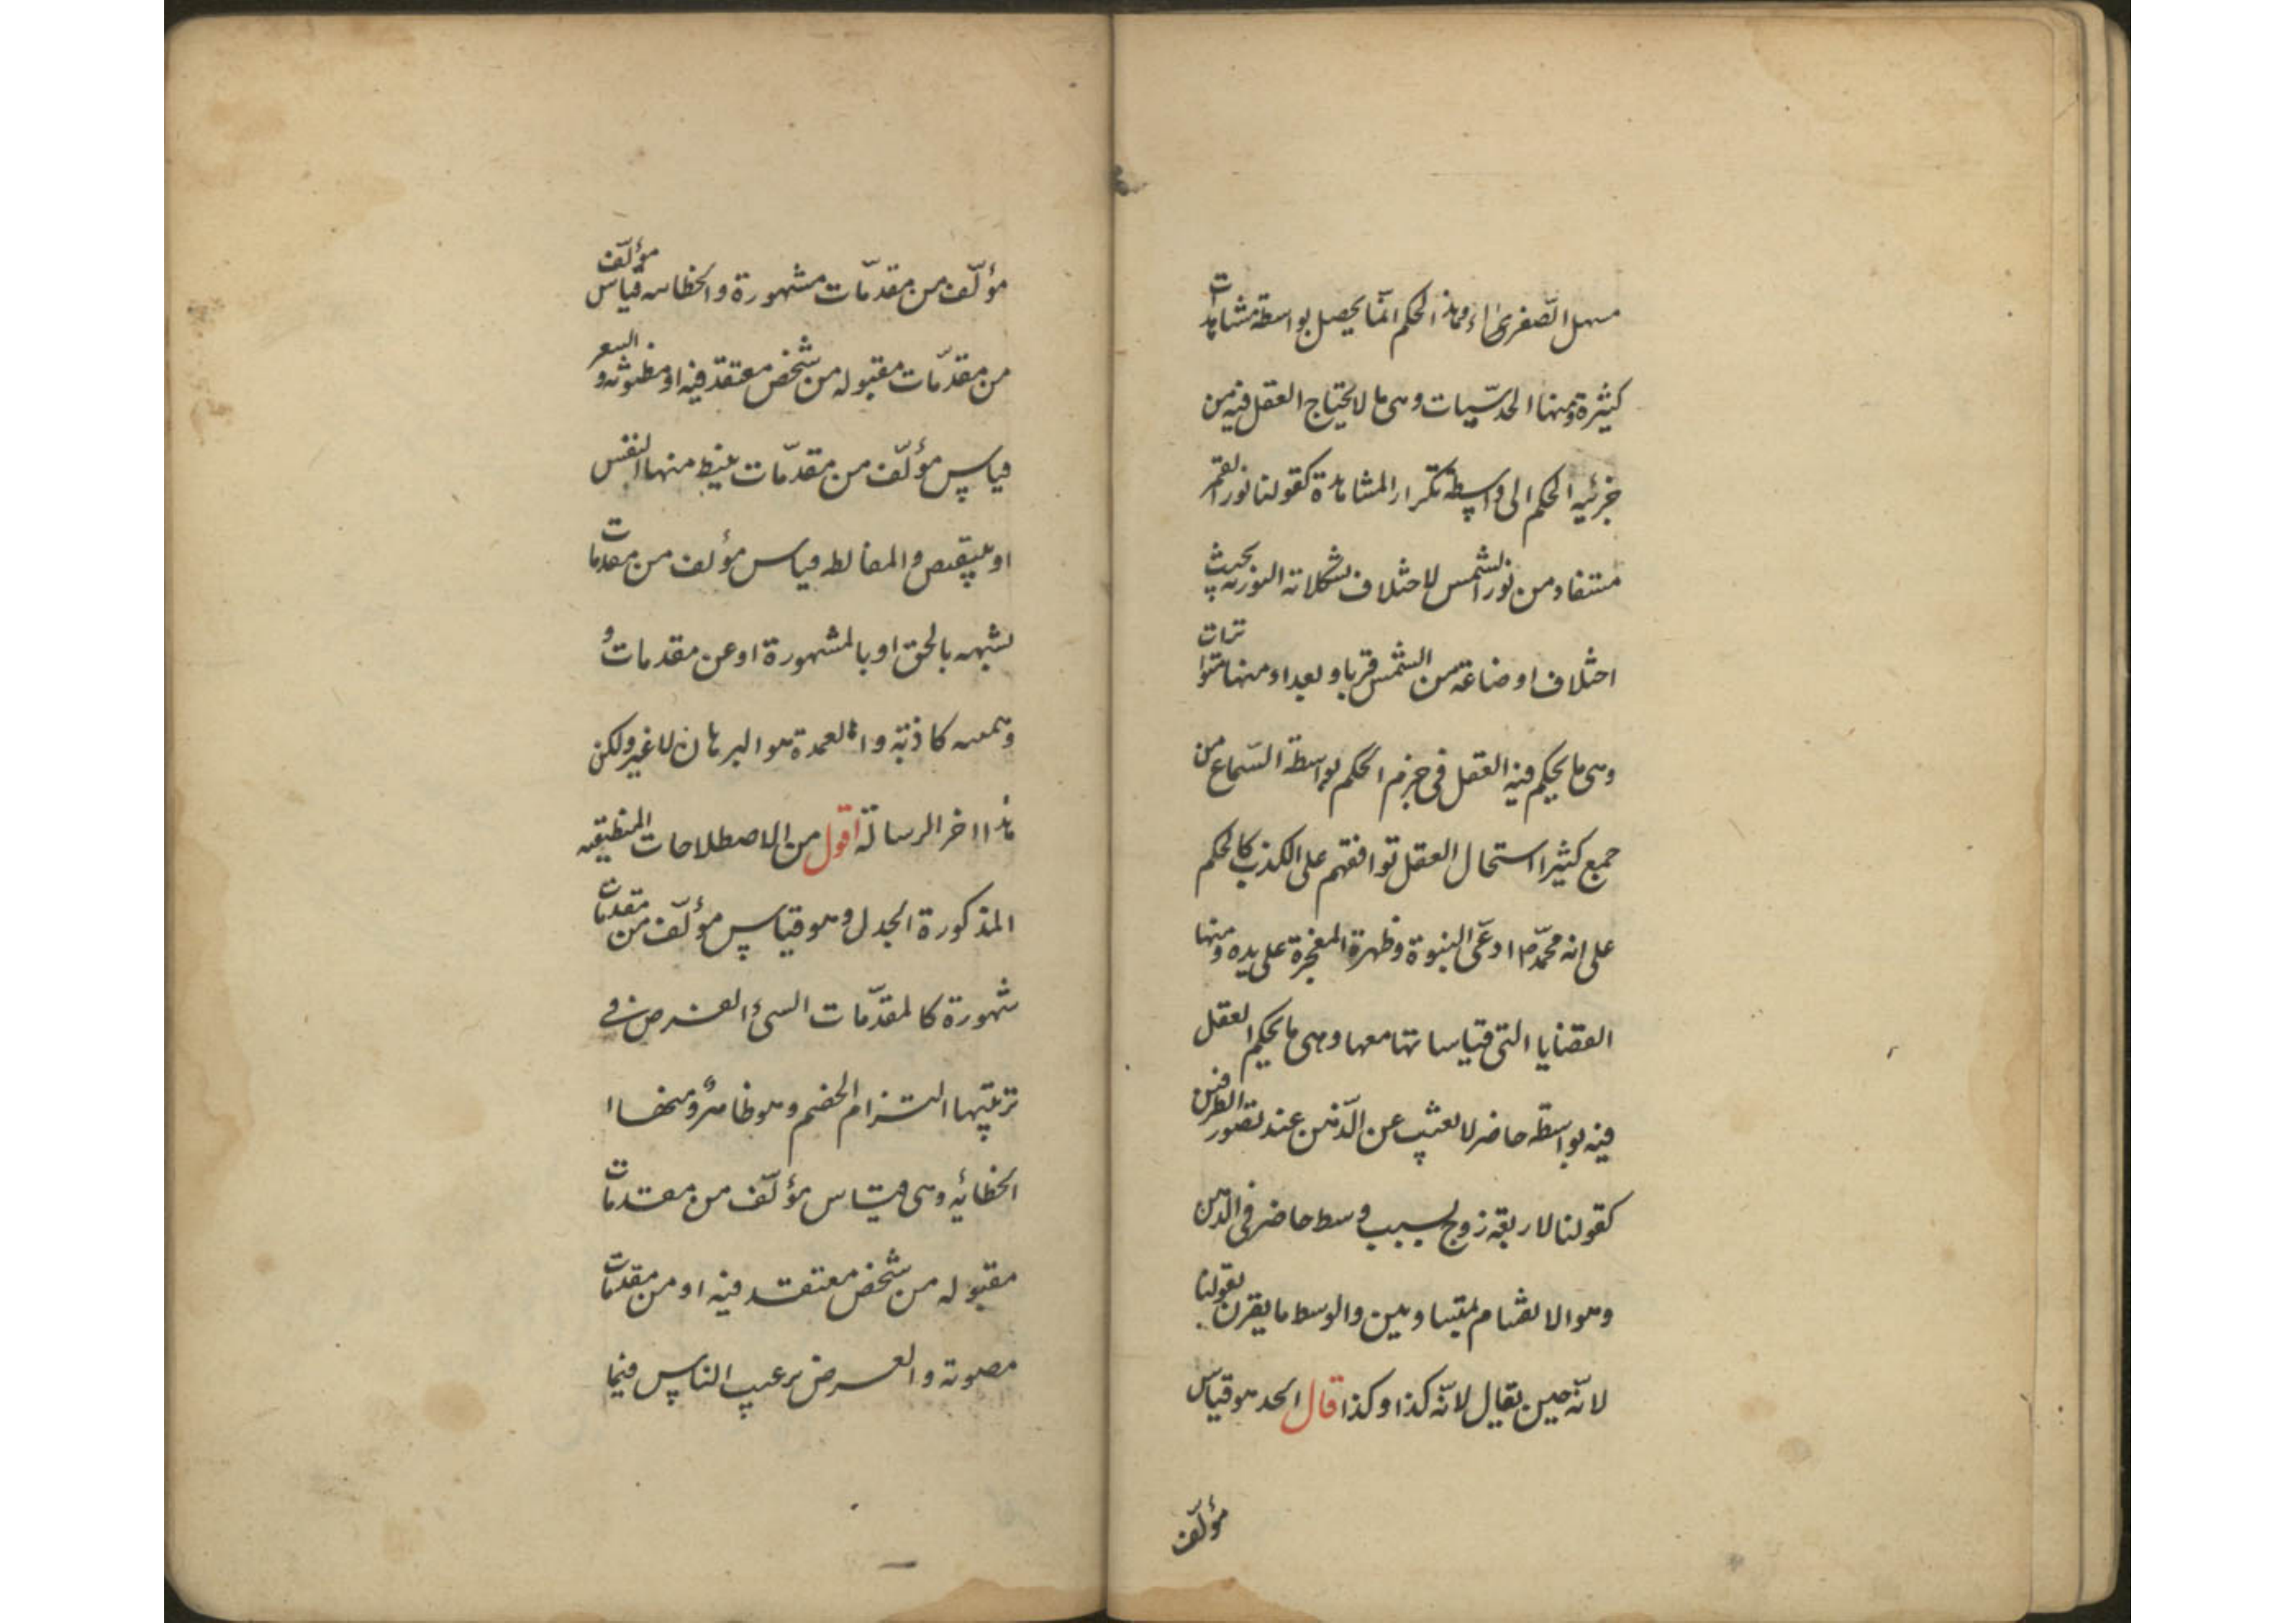 مسهل الصّفرى اء وهذا الحكم انّما يحصل بواسطة مشاهدات
كثيرة ومنها الحدسّيات وهى ما لا يحتاج العقل فيه من
جزئيه الحكم الى واسطة تكرار المشاهدة كقولنا نور القمر
مستفاد من نور الشمس لاختلاف تشكلاته النوريه بحيث
اختلاف اوضاعة من الشمس قربا و بعدا ومنها متواترات
وهى ما يحكم فيه العقل فى جزم الحكم بواسطة السّماع من
جمع كثيرا استحال العقل توافقهم على الكذب كالحكم
على انه محمّد ص ادعّى النبوة وظهرة المعجزة على يده ومنها
القضايا التى قياساتها معها وهى ما يحكم العقل
فيه بواسطة حاضر لا تغيب عن الذّهن عند تصور الطرفين
كقولنا لاربعة زوج بسبب وسط حاضر فى الذّهن
وهو الانقسام بمتساويين والوسط ما يقرن بقولنا
لانّه حين يقال لانّه كذا وكذا قال الحد هو قياس
مؤلّف
مؤلّف من مقدمّات مشهورة والخطابه قياس مؤلّف
من مقدّمات مقبوله من شخص معتقد فيه او مظنونه و الشعر
قياس مؤلّف من مقدّمات ينبط منها النفس
او ينقبض والمغالطه قياس مؤلف من مقدمات
شبهه بالحق او بالمشهورة او عن مقدمات و
وهميه كاذبة و العمدة هو البرهان لا غير ولكن
هذا اخر الرسالة اقول من الاصطلاحات المنطقيه
المذكورة الجدل وهو قياس مؤلّف من مقدمات
شهورة كالمقدّمات التى الغرض فى
ترتيبها التزام الخصم وهو ظاهر ومنها ا
الخطائيه وهى قياس مؤلّف من مقدمات
مقبوله من شخص معتقد فيه او من مقدمات
مصونة و الغرض ترعيب الناس فيما